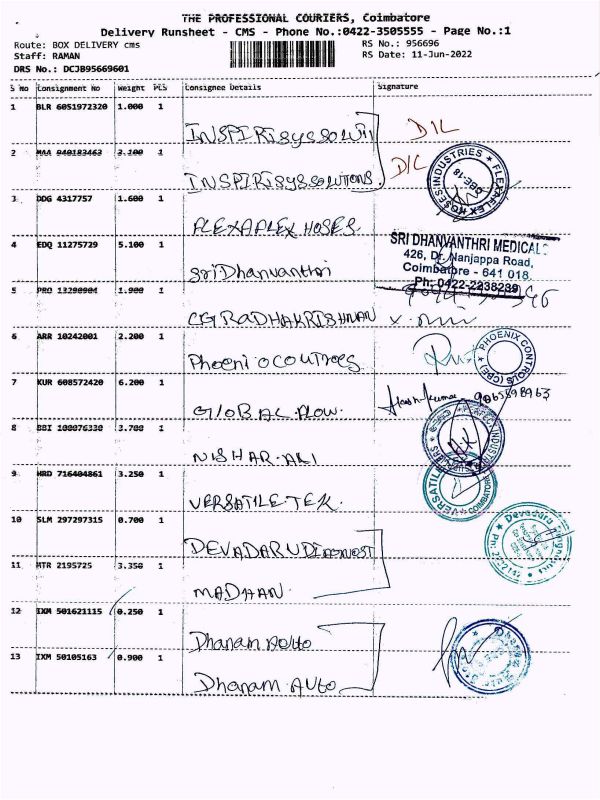 THE PROFESSIONAL COURIERS, Coimbatore
Delivery Runsheet - CMS - Phone No.:0422-3505555 - Page No.:1
Route: BOX DELIVERY cms RS No.: 956696
Staff: RAMAN RS Date: 11-Jun-2022
DRS No.: DCJB95669601
S No Consignment No Weight PCS Consignee Details Signature
1 BLR 6051972320 1.000 1
INSPIRisys SOLUTI DIL
2 MAA 940183463 2.100 1
INSPIRisys SOLUTIONS. DIL
FLEXAFLEX HOSES INDUSTRIES
3 DDG 4317757 1.600 1
FLEXAFLEX HOSES.
4 EDQ 11275729 5.100 1
Sri Dhanvanthri
SRI DHANVANTHRI MEDICALS
426, Dr. Nanjappa Road,
Coimbatore - 641 018.
Ph: 0422-2238239
5 PRO 13290904 1.900 1
CG RADHAKRISHNAN
6 ARR 10242001 2.200 1
PHOENIX CONTROLS (CBE)
7 KUR 608572420 6.200 1
GlOBAL FLOW.
8 BBI 100076330 3.700 1
NISHAR-ALI
9 HRD 716404861 3.250 1
VERSATILE TEK.
VERSATILE
COIMBATORE
10 SLM 297297315 0.700 1
DEVADARU DIAGNOST
Devadaru
11 MTR 2195725 3.350 1
MADHAN.
12 IXM 501621115 0.250 1
Dhanam AUto
13 IXM 50105163 0.900 1
Dhanam AUto